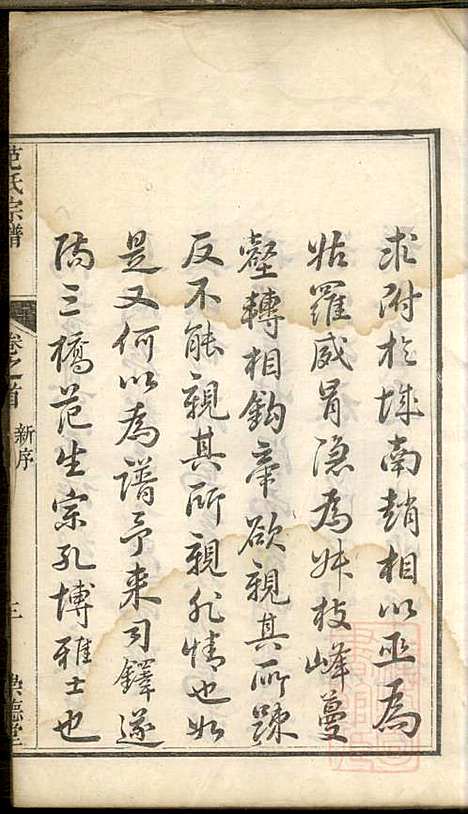 求附於城南趙相以巫為
姑羅威冒隱為姊枝峰蔓
壑轉相鈎牽欲親其所踈
反不能親其所親非情也如
是又何以為譜予来司鐸遂
陽三橋范生宗孔博雅士也
范氏宗譜
卷之首 新序
三
樂德堂